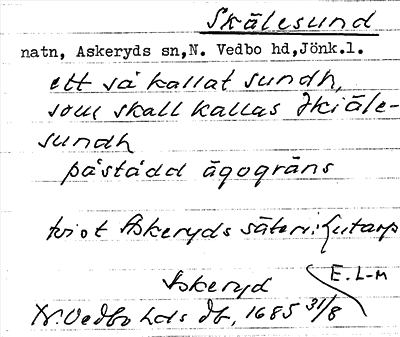 Skälesund
natn, Askeryds sn,N. Vedbo hd,Jönk.l.
ett så kallat sundh,
som skall kallas Skiäle-
sundh
påstådd ägogräns
tvist Askeryds säteri:Lutarp
Askeryd
E. L-M
N. Vedbo hds db, 1685 31/8